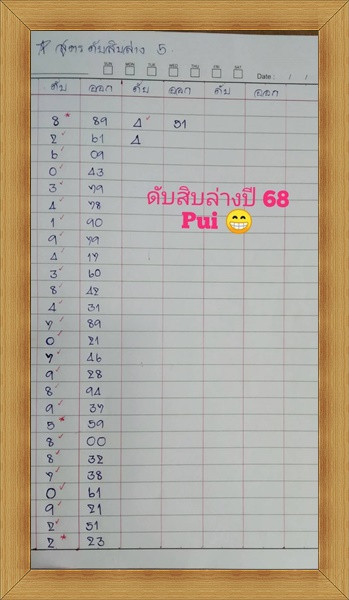 * สูตร ดับสิบล่าง 5.
SUN MON TUE WED THU FRI SAT
Date : / /
ดับ ออก ดับ ออก ดับ ออก
8 * 89 4 ✓ 51
2 ✓ 61 4
6 ✓ 09
0 ✓ 43
3 ✓ 79
4 ✓ 78
1 ✓ 90
9 ✓ 79
4 ✓ 17
3 ✓ 60
8 ✓ 42
4 ✓ 31
7 ✓ 89
0 ✓ 21
7 ✓ 46
9 ✓ 28
8 ✓ 94
9 ✓ 37
5 * 59
8 ✓ 00
8 ✓ 32
7 ✓ 38
0 ✓ 61
9 ✓ 21
2 ✓ 51
2 * 23
ดับสิบล่างปี 68
Pui 😁